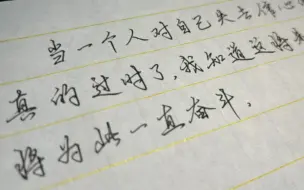 当一个人对自己失去信心
真的过时了，我知道这将
将为此一直奋斗．